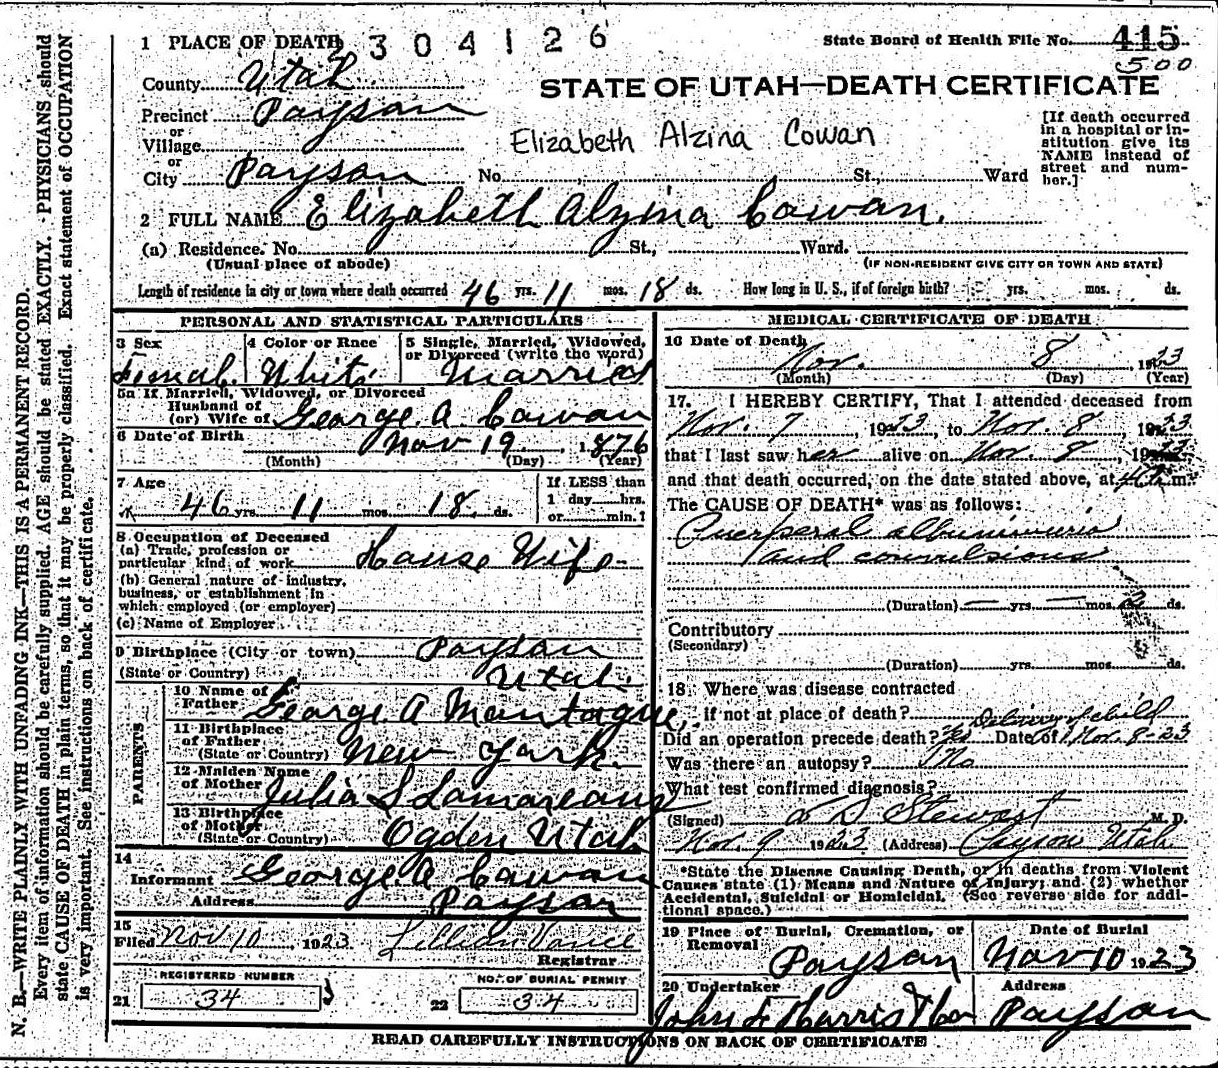 N. B.—WRITE PLAINLY WITH UNFADING INK—THIS IS A PERMANENT RECORD.
Every item of information should be carefully supplied. AGE should be stated EXACTLY. PHYSICIANS should
state CAUSE OF DEATH in plain terms, so that it may be properly classified. Exact statement of OCCUPATION
is very important. See instructions on back of certificate.
1 PLACE OF DEATH 304126
State Board of Health File No. 415
500
County Utah
STATE OF UTAH—DEATH CERTIFICATE
Precinct Payson
or
Village
Elizabeth Alzina Cowan
[If death occurred
in a hospital or in-
stitution give its
NAME instead of
street and num-
ber.]
or
City Payson No. St., Ward
2 FULL NAME Elizabeth Alzina Cowan.
(a) Residence. No. St., Ward.
(Usual place of abode) (IF NON-RESIDENT GIVE CITY OR TOWN AND STATE)
Length of residence in city or town where death occurred 46 yrs. 11 mos. 18 ds. How long in U. S., if of foreign birth? yrs. mos. ds.
PERSONAL AND STATISTICAL PARTICULARS
3 Sex 4 Color or Race 5 Single, Married, Widowed,
or Divorced (write the word)
Femal. White Married
5a If Married, Widowed, or Divorced
Husband of
(or) Wife of George A Cowan
6 Date of Birth Nov 19 1876
(Month) (Day) (Year)
7 Age If LESS than
46 yrs. 11 mos. 18 ds. 1 day hrs.
or min.?
8 Occupation of Deceased
(a) Trade, profession or
particular kind of work House Wife
(b) General nature of industry,
business, or establishment in
which employed (or employer)
(c) Name of Employer
9 Birthplace (City or town) Payson
(State or Country) Utah
PARENTS
10 Name of
Father George A Montague
11 Birthplace
of Father
(State or Country) New York
12 Maiden Name
of Mother Julia S
13 Birthplace
of Mother
(State or Country) Ogden Utah
14
Informant George A Cowan
Address Payson
15
Filed Nov 10 1923 Lillian Vance
Registrar
REGISTERED NUMBER NO. OF BURIAL PERMIT
21 34 22 34
MEDICAL CERTIFICATE OF DEATH
16 Date of Death
Nov. 8, 1923
(Month) (Day) (Year)
17. I HEREBY CERTIFY, That I attended deceased from
Nov. 7, 1923, to Nov. 8, 1923
that I last saw her alive on Nov. 8, 19
and that death occurred, on the date stated above, at m.
The CAUSE OF DEATH* was as follows:
Puerperal albuminuria
and convulsions
(Duration) — yrs. — mos. 2 ds.
Contributory
(Secondary)
(Duration) yrs. mos. ds.
18 Where was disease contracted
If not at place of death?
Delivery of child
Did an operation precede death? Yes Date of Nov. 8-23
Was there an autopsy? No
What test confirmed diagnosis?
(Signed) Stewart M. D.
Nov. 9 1923 (Address) Payson Utah
*State the Disease Causing Death, or in deaths from Violent
Causes state (1) Means and Nature of Injury; and (2) whether
Accidental, Suicidal or Homicidal. (See reverse side for addi-
tional space.)
19 Place of Burial, Cremation, or Date of Burial
Removal
Payson Nov 10 1923
20 Undertaker Address
John F Harris Payson
READ CAREFULLY INSTRUCTIONS ON BACK OF CERTIFICATE